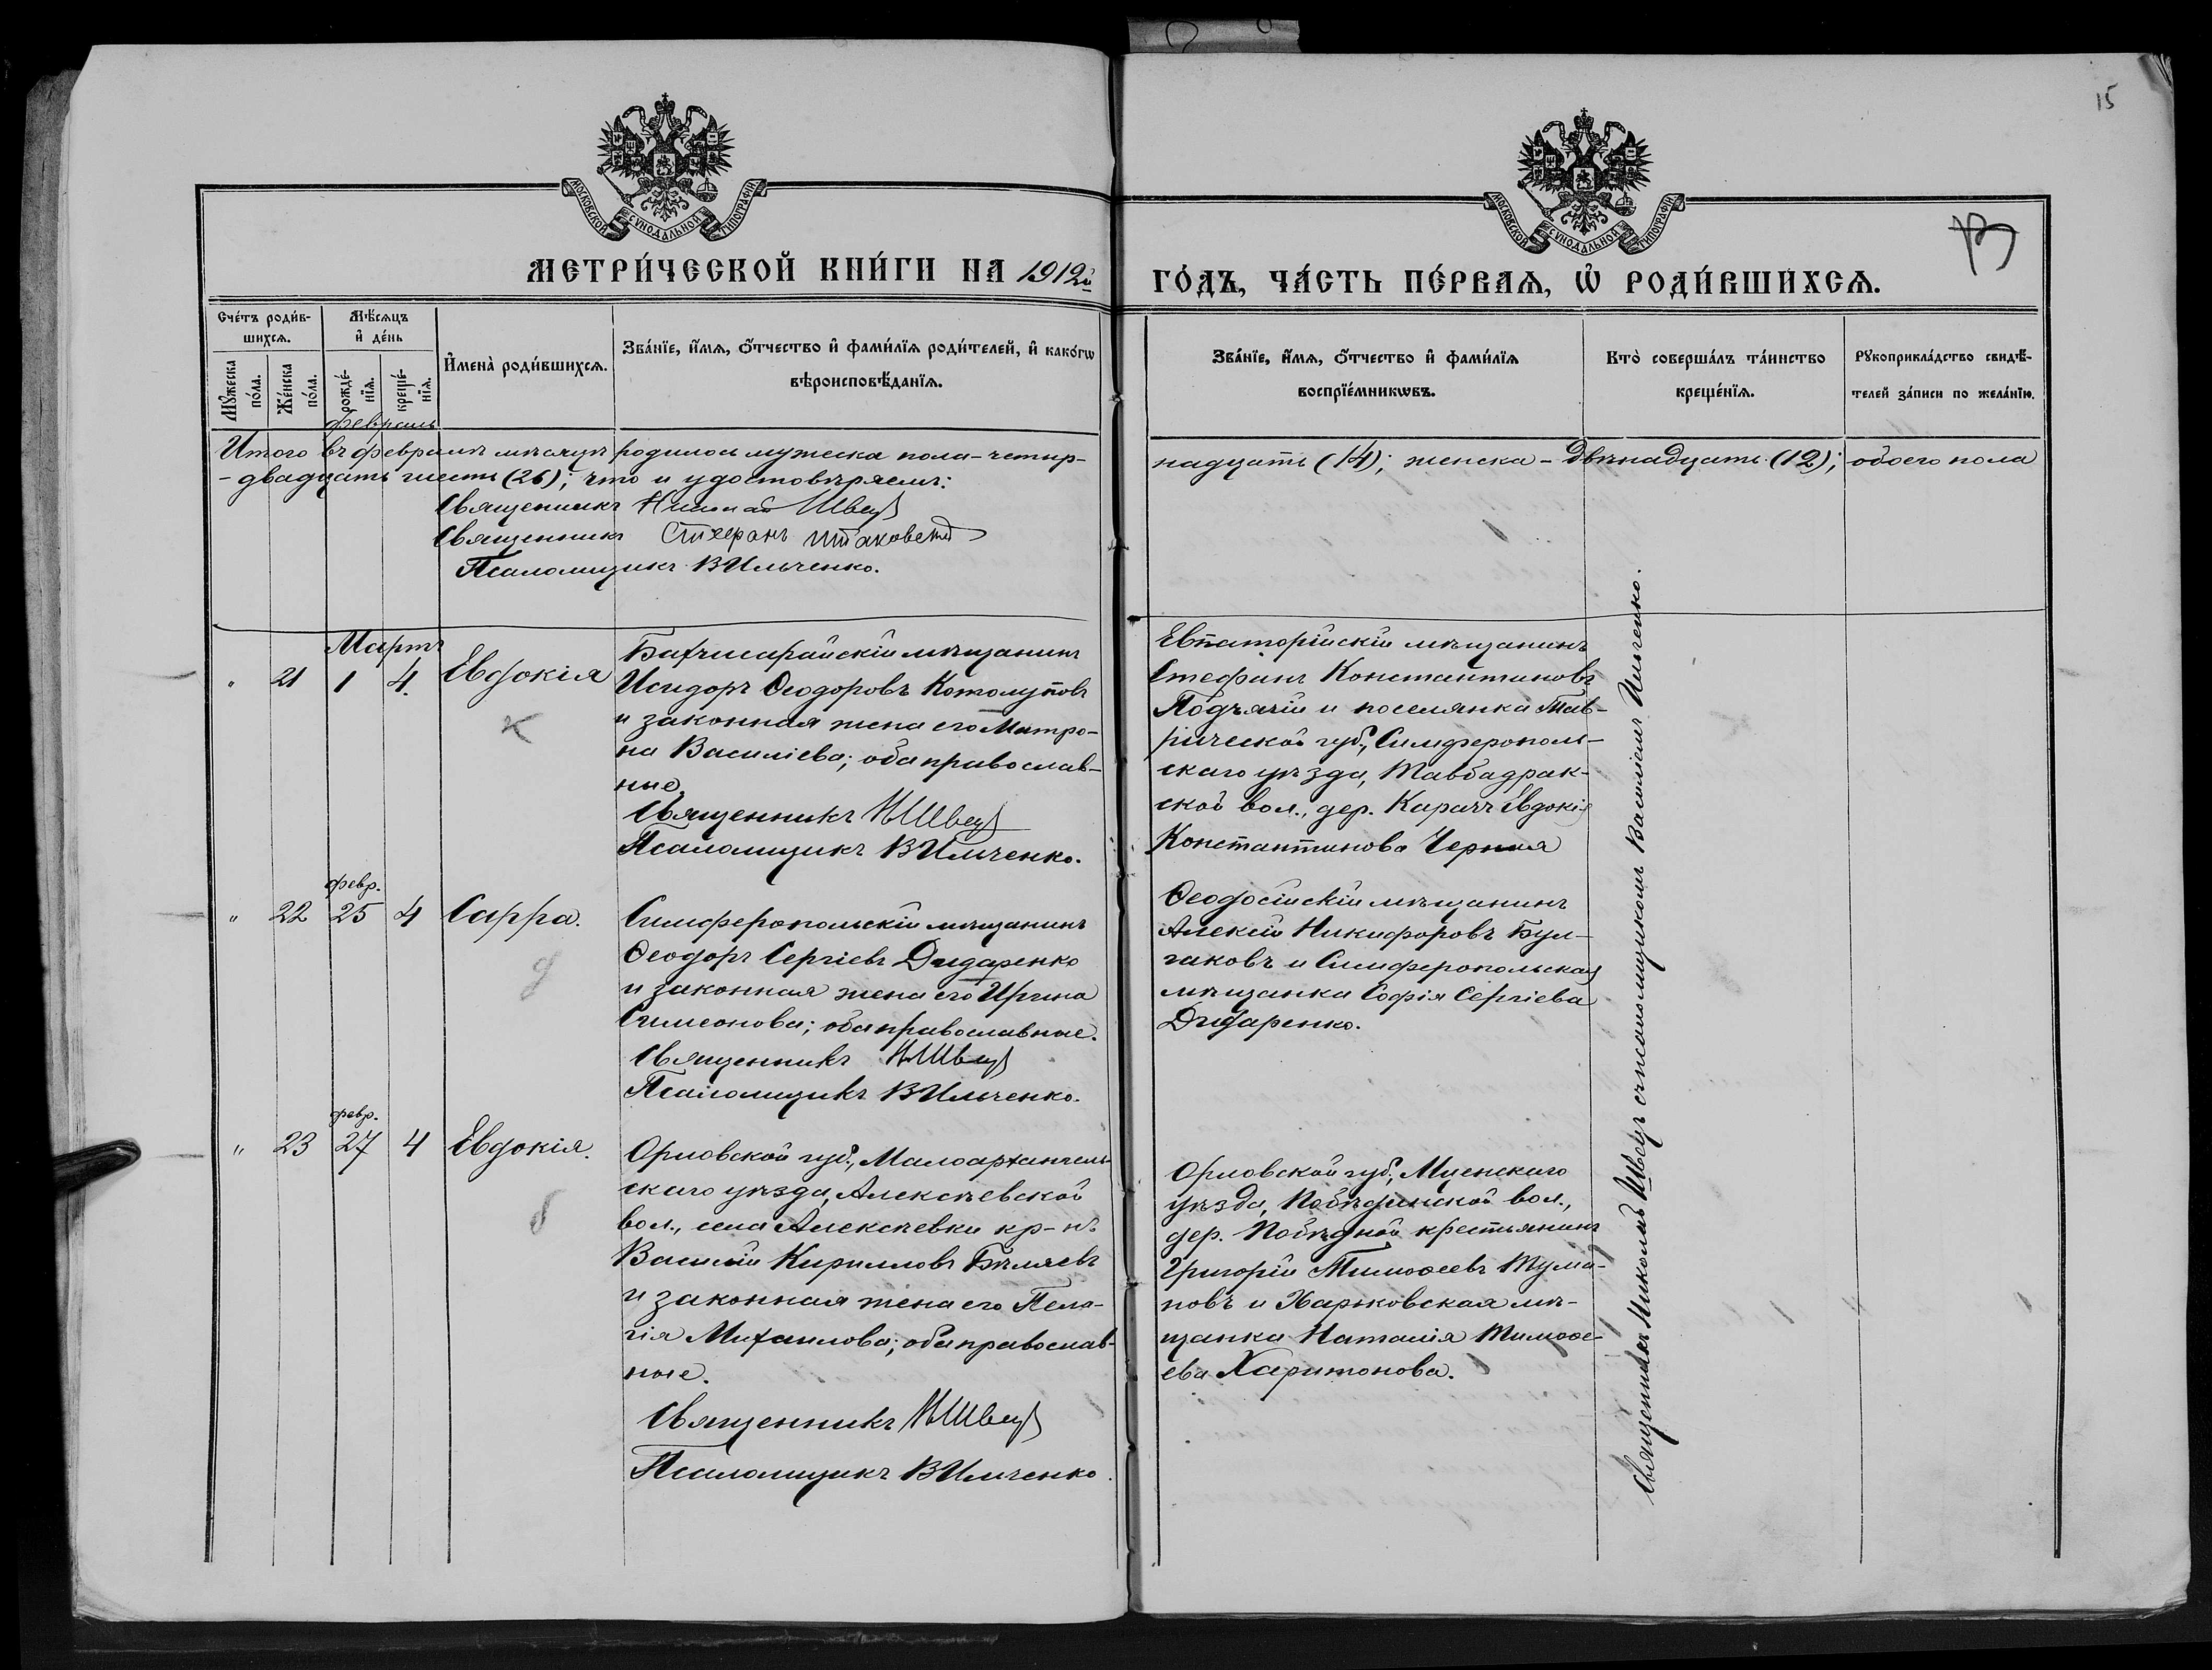 15
13
МОСКОВСКОЙ СѴНОДАЛЬНОЙ ТИПОГРАФІИ
МОСКОВСКОЙ СѴНОДАЛЬНОЙ ТИПОГРАФІИ
МЕТРИ́ЧЕСКОЙ КНИ́ГИ НА 1912й ГО́ДЪ, ЧА́СТЬ ПЕ́РВАѦ, Ѿ РОДИ́ВШИХСѦ.
Сче́тъ роди́в-
шихсѧ.
Мꙋ́жеска по́ла.
Же́нска по́ла.
Мѣ́сѧцъ
и҆ де́нь
рожде́-
нїѧ.
креще́-
нїѧ.
И҆мена̀ роди́вшихсѧ.
Зва́нїе, и҆́мѧ, ѻ҆́тчество и҆ фами́лїѧ роди́телей, и҆ како́гѡ
вѣроисповѣ́данїѧ.
Зва́нїе, и҆́мѧ, ѻ҆́тчество и҆ фами́лїѧ
воспрїе́мникѡвъ.
Кто̀ соверша́лъ та́инство
креще́нїѧ.
Рꙋкоприкла́дство свидѣ́-
телей за́писи по жела́нїю.
Февраль
Итого въ февралѣ мѣсяцѣ родилось мужеска пола - четыр-
надцать (14); женска - двѣнадцать (12); обоего пола
- двадцать шесть (26); что и удостовѣряемъ:
Священникъ Николай Швецъ
Священникъ Стефанъ
Псаломщикъ В Ильченко.
Мартъ
" 21 1 4. Евдокія
Бахчисарайскій мѣщанинъ
Исидоръ Ѳеодоровъ Котолуповъ
и законная жена его Матро-
на Василіева; оба православ-
ные.
Священникъ Н Швецъ
Псаломщикъ В Ильченко.
Евпаторійскій мѣщанинъ
Стефанъ Константиновъ
Подъячій и поселянка Тав-
рической губ., Симферополь-
скаго уѣзда, Тавбадрак-
ской вол., дер. Карачъ Евдокія
Константинова Черная
февр.
" 22 25 4 Сарра.
Симферопольскій мѣщанинъ
Ѳеодоръ Сергіевъ Дидаренко
и законная жена его Ирина
Симеонова; оба православные.
Священникъ Н Швецъ
Псаломщикъ В Ильченко.
Ѳеодосійскій мѣщанинъ
Алексій Никифоровъ Бул-
гаковъ и Симферопольская
мѣщанка Софія Сергіева
Дидаренко.
февр.
" 23 27 4 Евдокія.
Орловской губ., Малоархангель-
скаго уѣзда, Алексѣевской
вол., села Алексѣевки кр-нъ
Василій Кирилловъ Бѣляевъ
и законная жена его Пела-
гія Михаилова; оба православ-
ные.
Священникъ Н Швецъ
Псаломщикъ В Ильченко.
Орловской губ., Мценскаго
уѣзда, Побѣдинской вол.,
дер. Побѣдной крестьянинъ
Григорій Тимоѳеевъ Тума-
новъ и Харьковская мѣ-
щанка Наталія Тимоѳе-
ева Харитонова.
Священникъ Николай Швецъ съ псаломщикомъ Василіемъ Ильченко.